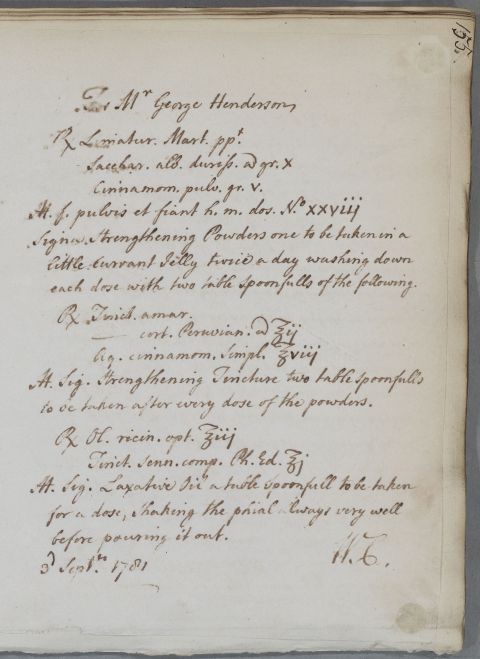 155.
For Mr George Henderson,
℞ Limatur. Mart. ppt.
Sacchar. alb. duriss. a̅ gr. x
Cinnamom. pulv. gr. v.
M. f. pulvis et fiant h. m. dos. No. xxviij
Signa, Strengthening Powders one to be taken in a
little Currant Jelly twice a day washing down
each dose with two table spoonfulls of the following.
℞ Tinct. amar.
— cort. Peruvian. a̅ ℥ij
Aq. cinnamom. simpl. ℥viij
M. Sig. Strengthening Tincture two table spoonfulls
to be taken after every dose of the powders.
℞ Ol. ricin. opt. ℥iij
Tinct. senn. comp. Ph. Ed. ℥j
M. Sig. Laxative Oil a table spoonfull to be taken
for a dose, shaking the phial always very well
before pouring it out.
3d Septr. 1781 W. C.